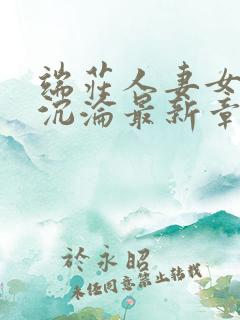 端莊人妻女
沉淪最新章
於永昭
未经同意禁止转载